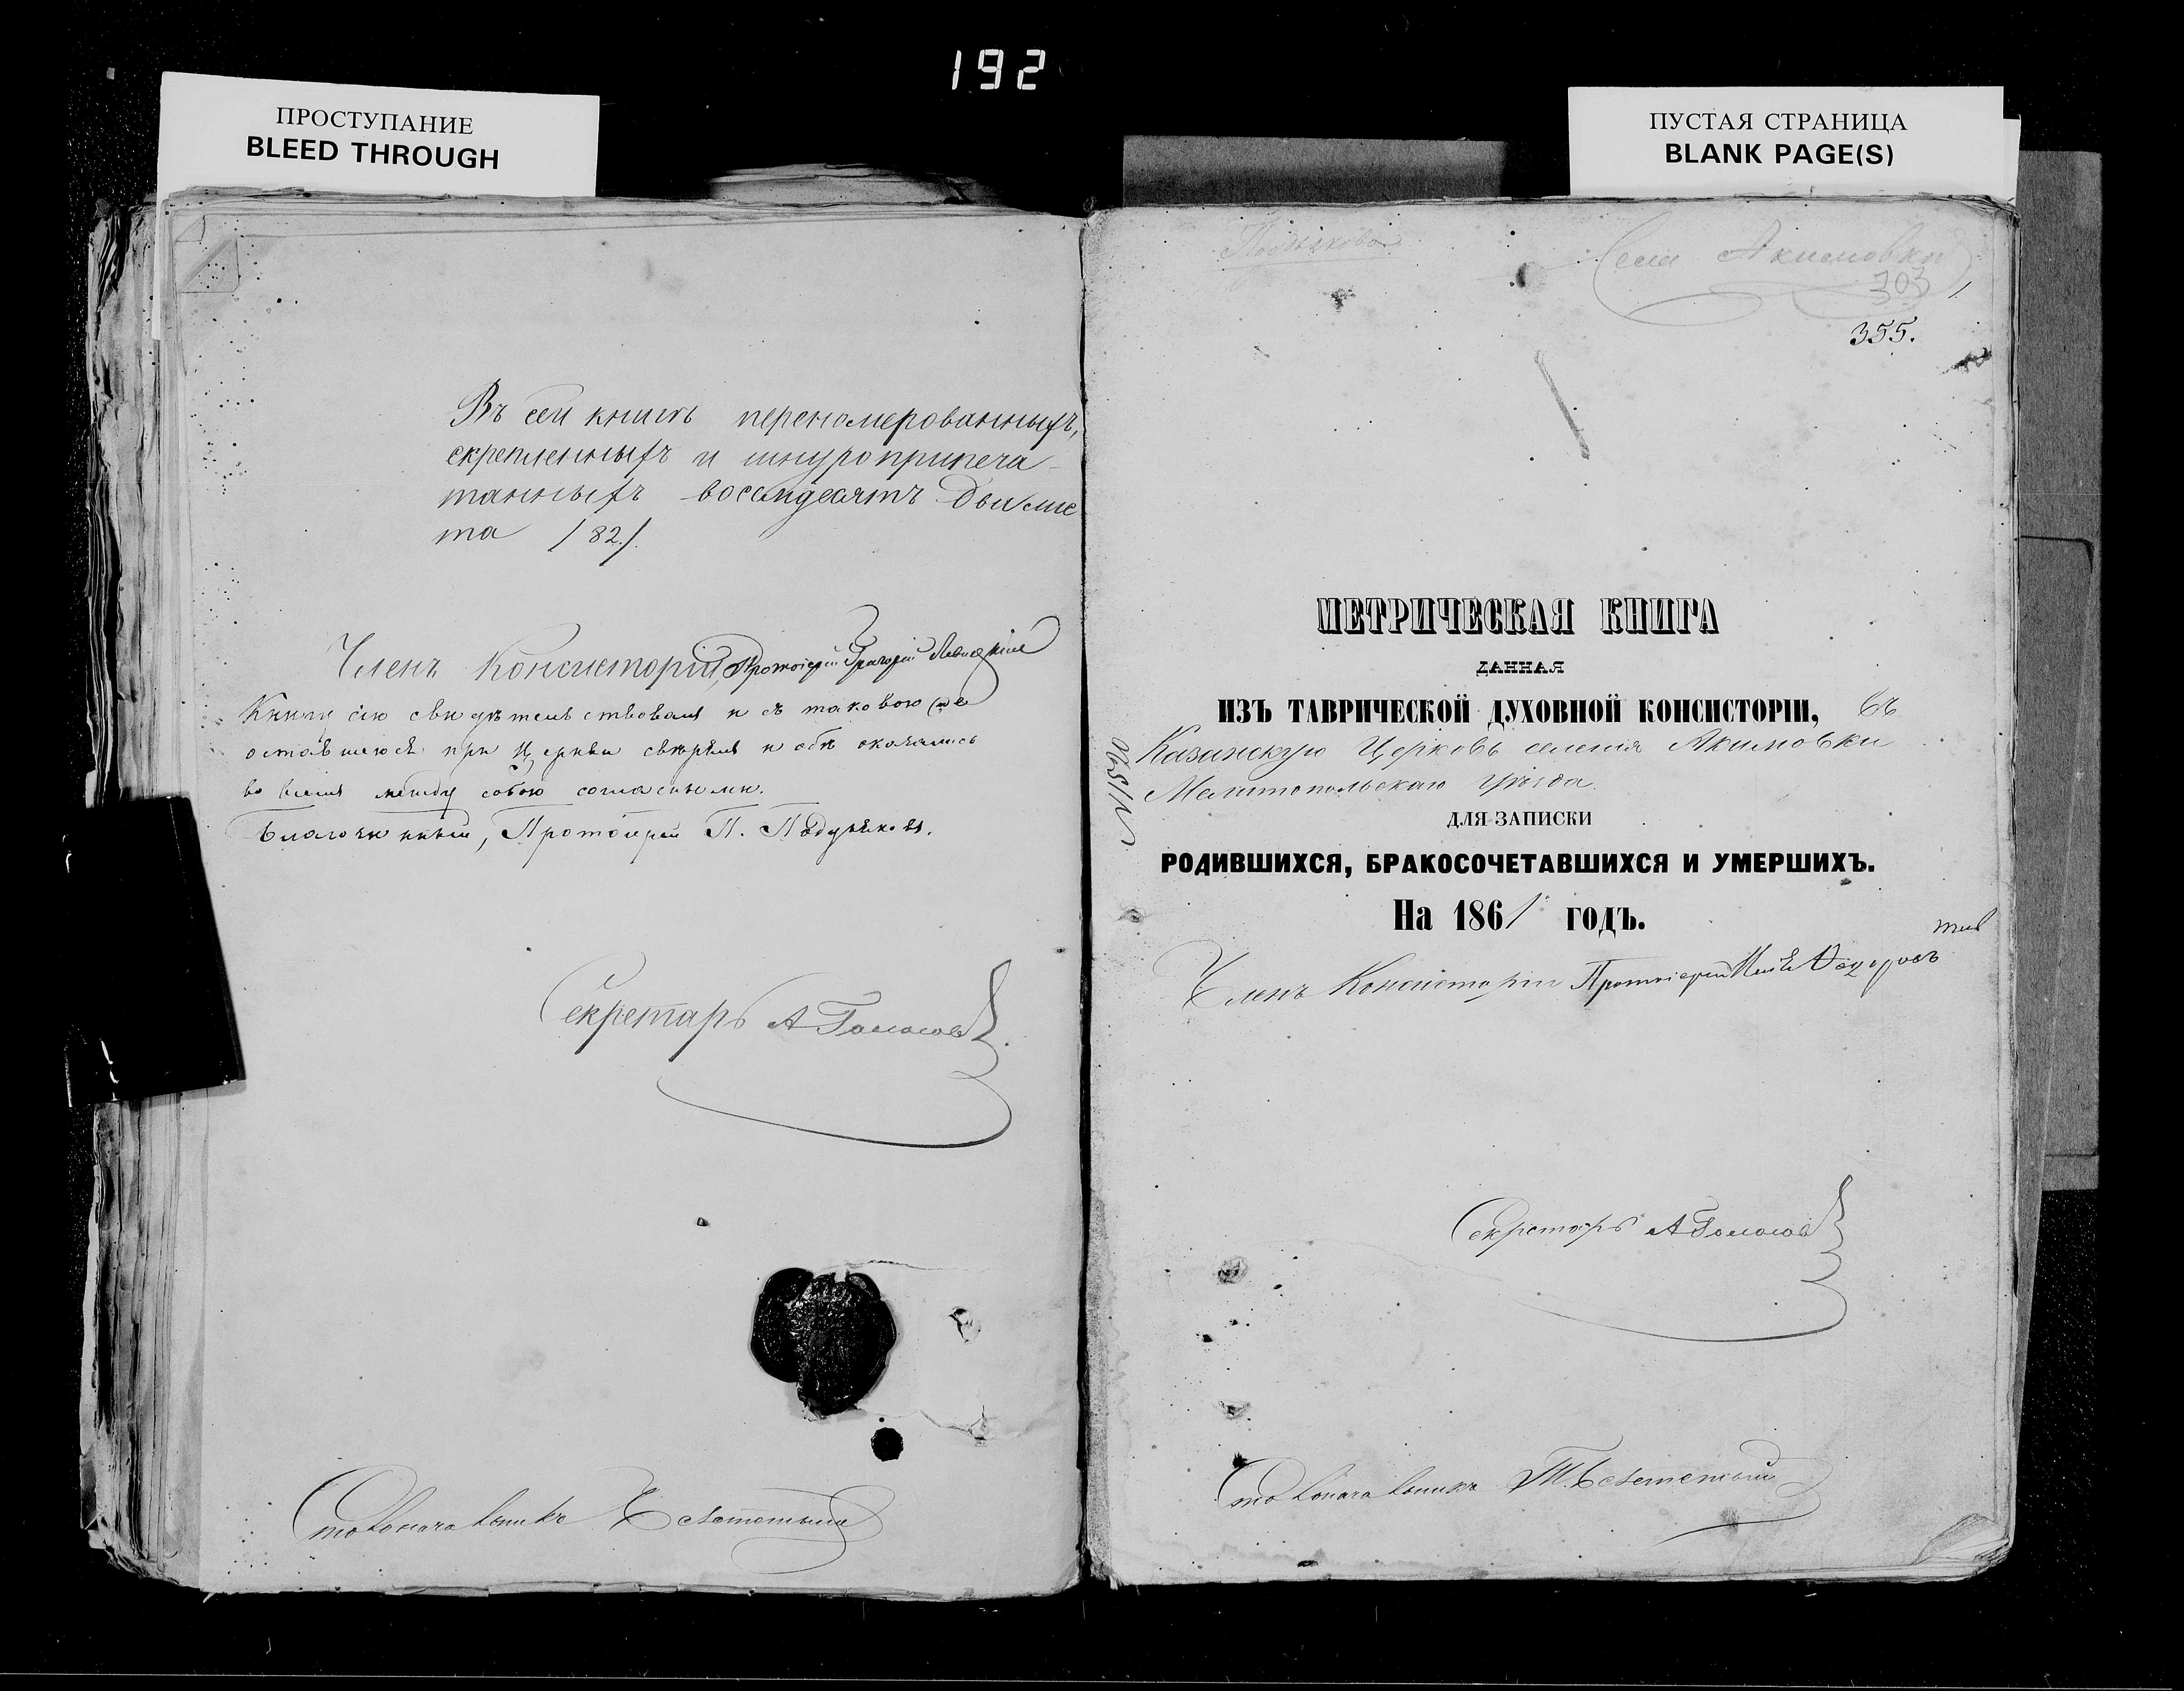 192
ПРОСТУПАНИЕ
BLEED THROUGH
Въ сей книгѣ перенумерованныхъ,
скрепленныхъ и шнуроприпеча-
танныхъ восемдесятъ два лис
та /82/.
Членъ Консисторіи, Протоіерей Григорій
Книгу сію свидѣтельствовалъ и съ таковою же
оставшеюся при Церкви свѣрялъ и обѣ оказались
во всемъ между собою согласными.
Благочинный, Протоіерей П.
Секретарь А Гомолов
Столоначальникъ
ПУСТАЯ СТРАНИЦА
BLANK PAGE(S)
Села Акимовки
303
355.
МЕТРИЧЕСКАЯ КНИГА
ДАННАЯ
ИЗЪ ТАВРИЧЕСКОЙ ДУХОВНОЙ КОНСИСТОРІИ, въ
Казанскую Церковь селенія Акимовки
Мелитопольскаго уѣзда
ДЛЯ ЗАПИСКИ
РОДИВШИХСЯ, БРАКОСОЧЕТАВШИХСЯ И УМЕРШИХЪ.
На 1861 годъ.
Членъ Консисторіи Протоіерей
Секретарь А Гомолов
Столоначальникъ